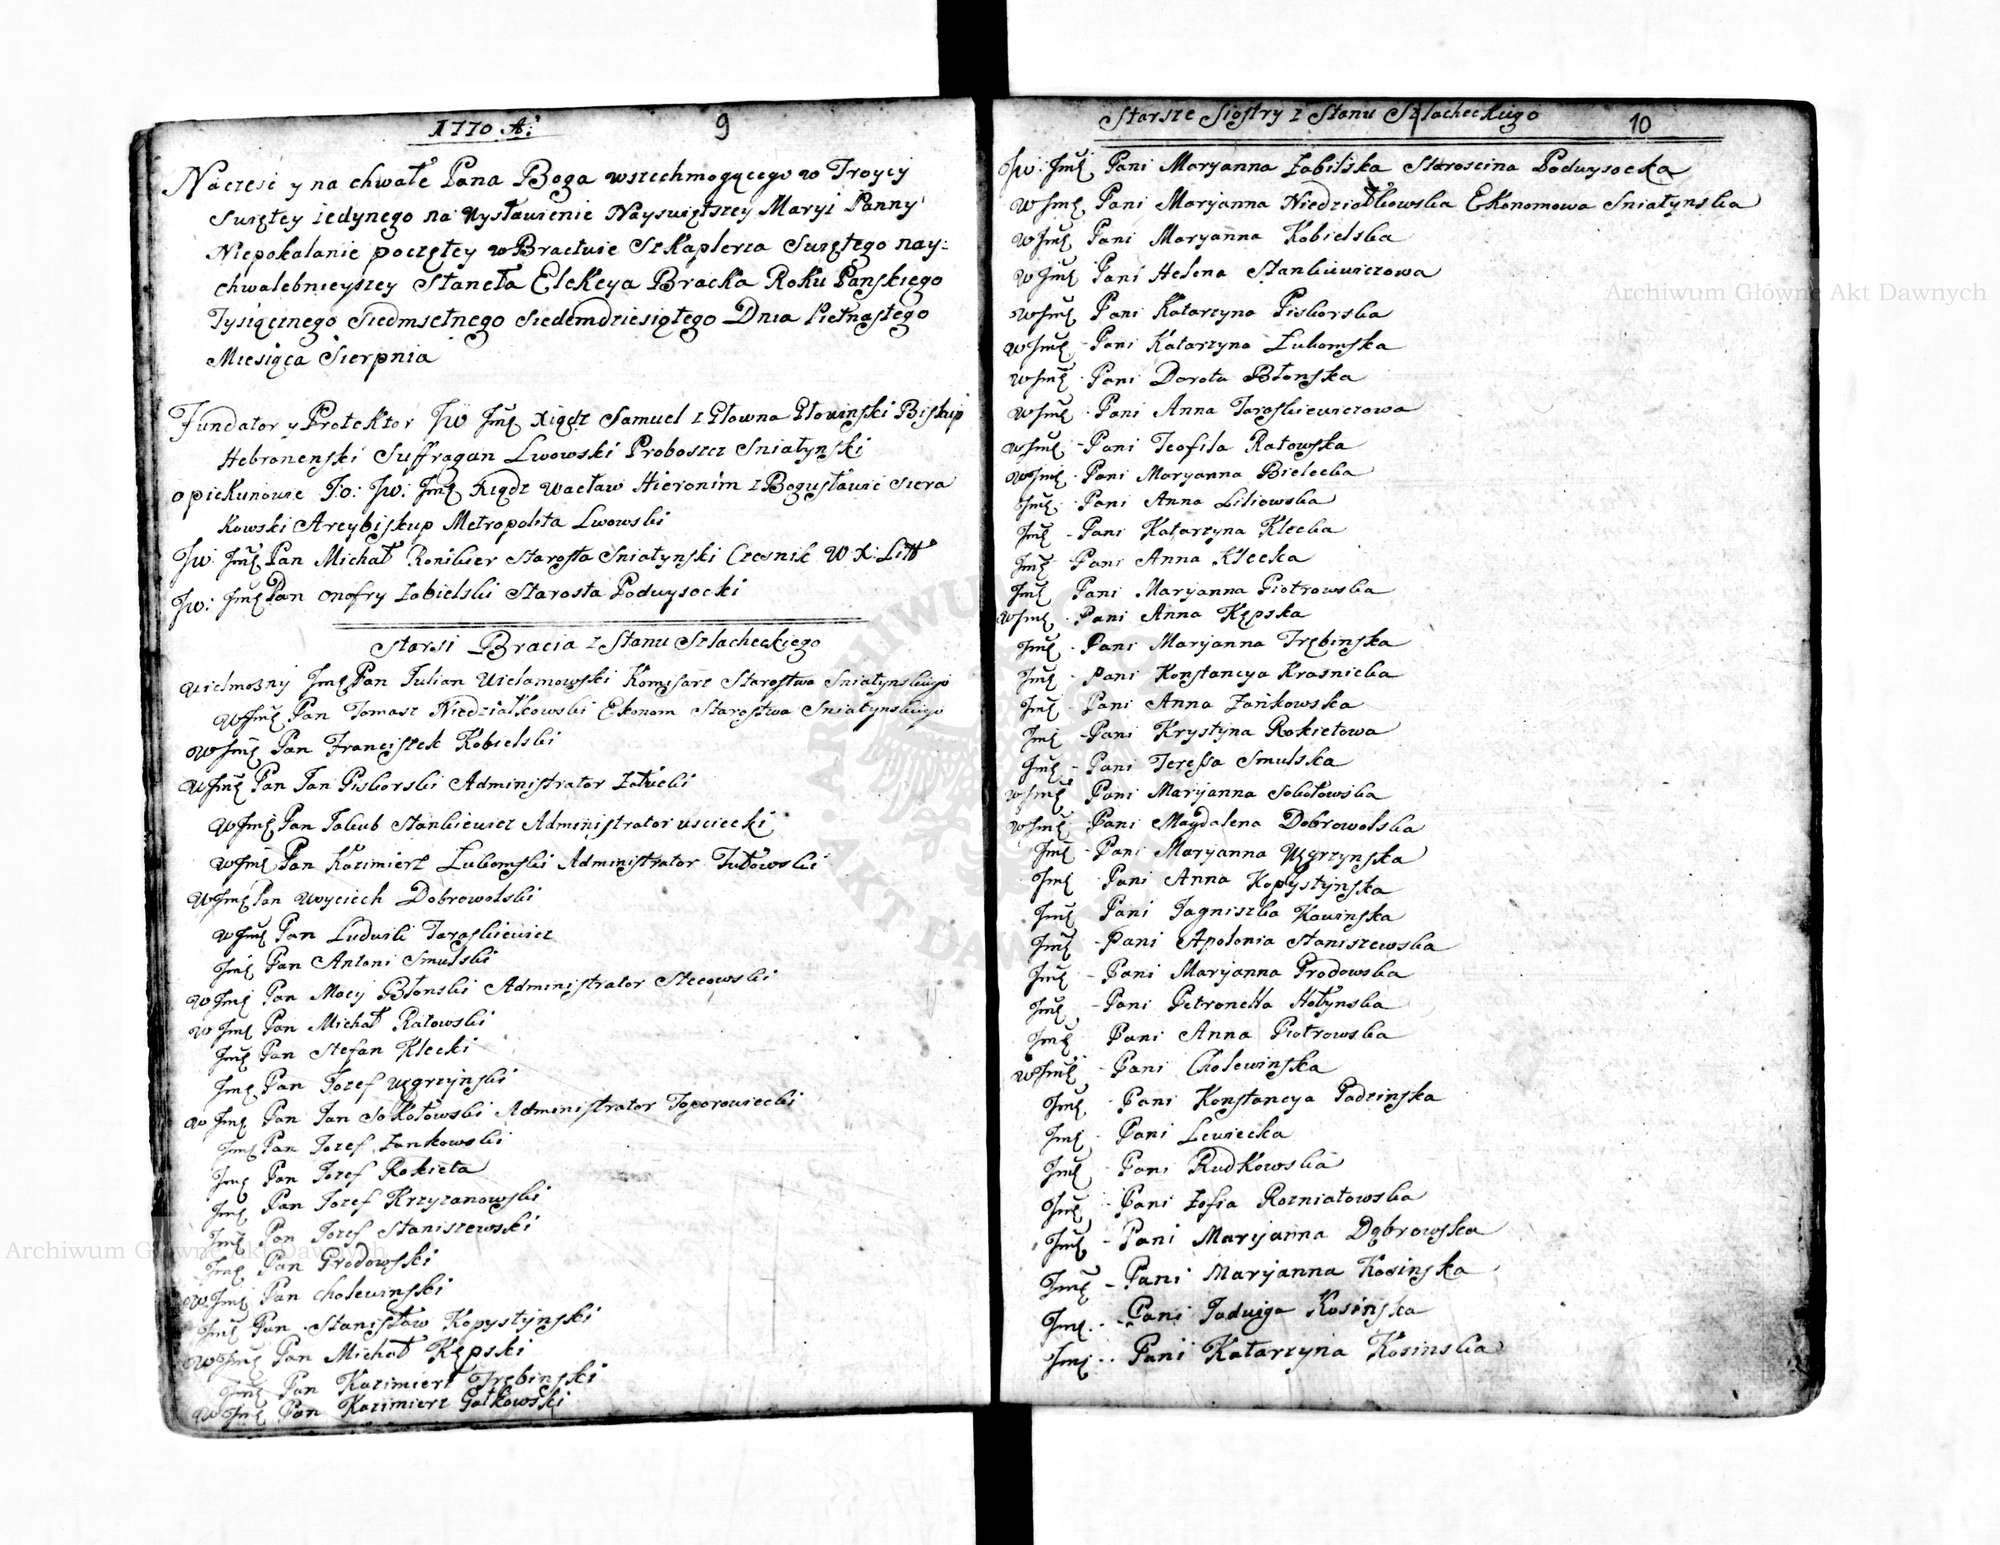 1770 A:
9
Na cześć y na chwałe Pana Boga wszechmogącego w Troycy
Swiętey iedynego na wysławienie Nayswiętszey Maryi Panny
Niepokalanie poczętey w Bractwie Szkaplerza Swiętego nay-
chwalebnieyszey Staneła Elekcya Bracka Roku Panskiego
Tysiącznego Siedmsetnego Siedemdziesiątego Dnia Piętnastego
Miesiąca Sierpnia
Fundator y Protektor Jw Jmę Xiądz Samuel z Głowna Głowinski Biskup
Hebronenski Suffragan Lwowski Proboszcz Sniatynski
opiekunowie Jo: Jw: Jmę Xiądz Wacław Hieronim z Bogusławic Siera
kowski Arcybiskup Metropolita Lwowski
Jw: Jmę Pan Michał Ronikier Starosta Sniatynski Czesnik W X: Litt
Jw: Jmę Pan Onofry Zabielski Starosta Podwysocki
Starsi Bracia z Stanu Szlacheckiego
Wielmozny Jmę Pan Julian Wielamowski Komisarz Starostwa Sniatynskiego
WJmę Pan Tomasz Niedziałkowski Ekonom Starostwa Sniatynskiego
WJmę Pan Franciszek Kobielski
WJmę Pan Jan Piskorski Administrator Załucki
WJmę Pan Jakub Stankiewicz Administrator Usciecki
WJmę Pan Kazimierz Lubomski Administrator Tułowski
WJmę Pan Woyciech Dobrowolski
WJmę Pan Ludwik Taraskiewicz
Jmę Pan Antoni Smulski
WJmę Pan Macij Błonski Administrator Stecowski
WJmę Pan Michał Ratowski
Jmę Pan Stefan Klecki
Jmę Pan Jozef Węgrzynski
WJmę Pan Jan Sokołowski Administrator Toporowiecki
Jmę Pan Jozef Zankowski
Jmę Pan Jozef Rokieta
Jmę Pan Jozef Krzyzanowski
Jmę Pan Jozef Staniszewski
Jmę Pan Grodowski
WJmę Pan Cholewinski
Jmę Pan Stanisław Kopystynski
WJmę Pan Michał Kępski
Jmę Pan Kazimierz Trębinski
WJmę Pan Kazimierz Gatkowski
Starsze Siostry z Stanu Szlacheckiego
10
Jw: Jmę Pani Maryanna Zabilska Staroscina Podwysocka
WJmę Pani Maryanna Niedziałkowska Ekonomowa Sniatynska
WJmę Pani Maryanna Kobielska
WJmę Pani Helena Stankiewiczowa
WJmę Pani Katarzyna Piskorska
WJmę - Pani Katarzyna Lubomska
WJmę - Pani Dorota Błonska
WJmę - Pani Anna Taraskiewiczowa
WJmę - Pani Teofila Ratowska
WJmę - Pani Maryanna Bielecka
Jmę - Pani Anna Liliowska
Jmę - Pani Katarzyna Klecka
Jmę - Pani Anna Klecka
Jmę Pani Maryanna Piotrowska
WJmę - Pani Anna Kępska
Jmę - Pani Maryanna Trębinska
Jmę - Pani Konstancya Krasnicka
Jmę - Pani Anna Zankowska
Jmę - Pani Krystyna Rokietowa
Jmę - Pani Teressa Smulska
WJmę Pani Maryanna Sokołowska
WJmę - Pani Magdalena Dobrowolska
Jmę - Pani Maryanna Węgrzynska
Jmę - Pani Anna Kopystynska
Jmę Pani Jagniszka Kawinska
Jmę - Pani Apolonia Staniszewska
Jmę - Pani Maryanna Prodowska
Jmę - Pani Petronella Hołynska
Jmę Pani Anna Piotrowska
WJmę - Pani Cholewinska
Jmę - Pani Konstancya Padzinska
Jmę - Pani Lewiecka
Jmę - Pani Rudkowska
Jmę - Pani Zofia Rozniatowska
Jmę - Pani Maryanna Dąbrowska
Jmę - Pani Maryanna Kosinska
Jmę - Pani Jadwiga Kosinska
Jmę - Pani Katarzyna Kosinska
Archiwum Główne Akt Dawnych
Archiwum Główne Akt Dawnych
ARCHIWUM
AKT DAWNYCH